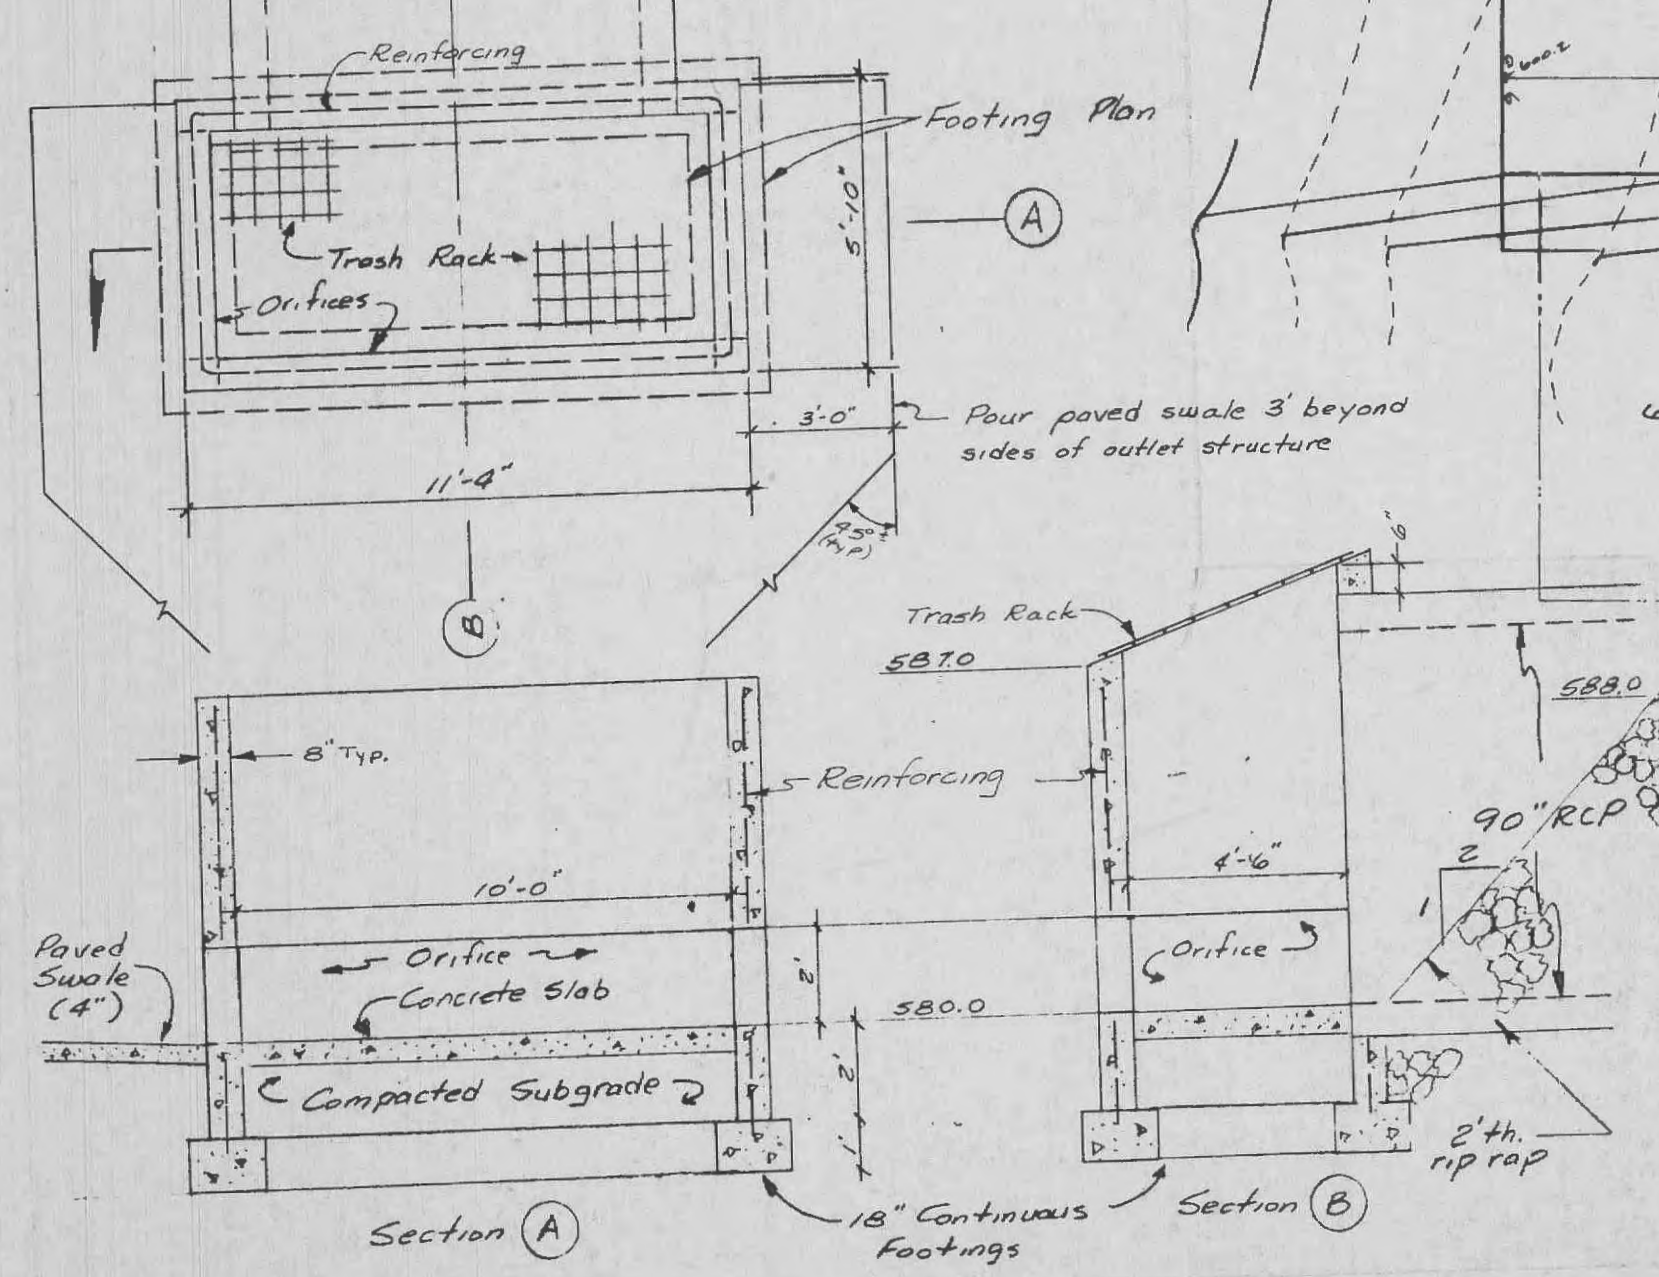 Reinforcing
Footing Plan
600.2
5'-10"
A
Trash Rack
Orifices
3'-0"
Pour paved swale 3' beyond
sides of outlet structure
11'-4"
45°±
(typ)
B
6"
Trash Rack
587.0
588.0
8" Typ.
Reinforcing
90" RCP
2
1
4'-6"
10'-0"
Paved
Swale
(4")
Orifice
Concrete Slab
2'
Orifice
580.0
Compacted Subgrade
2'
1'
2' th.
rip rap
Section A
18" Continuous
Footings
Section B